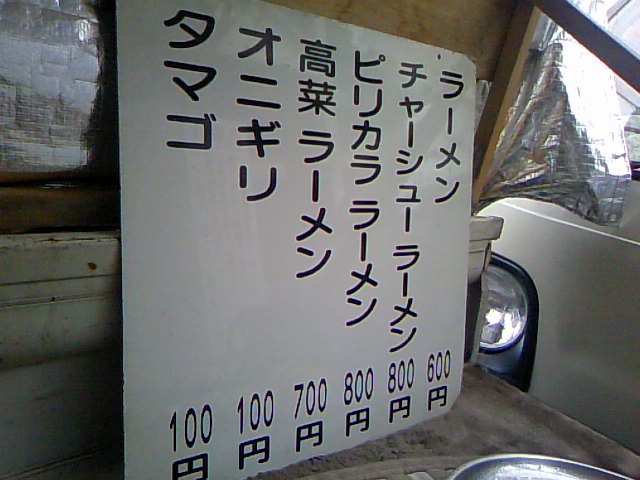 ラーメン 600円
チャーシューラーメン 800円
ピリカラ ラーメン 800円
高菜 ラーメン 700円
オニギリ 100円
タマゴ 100円